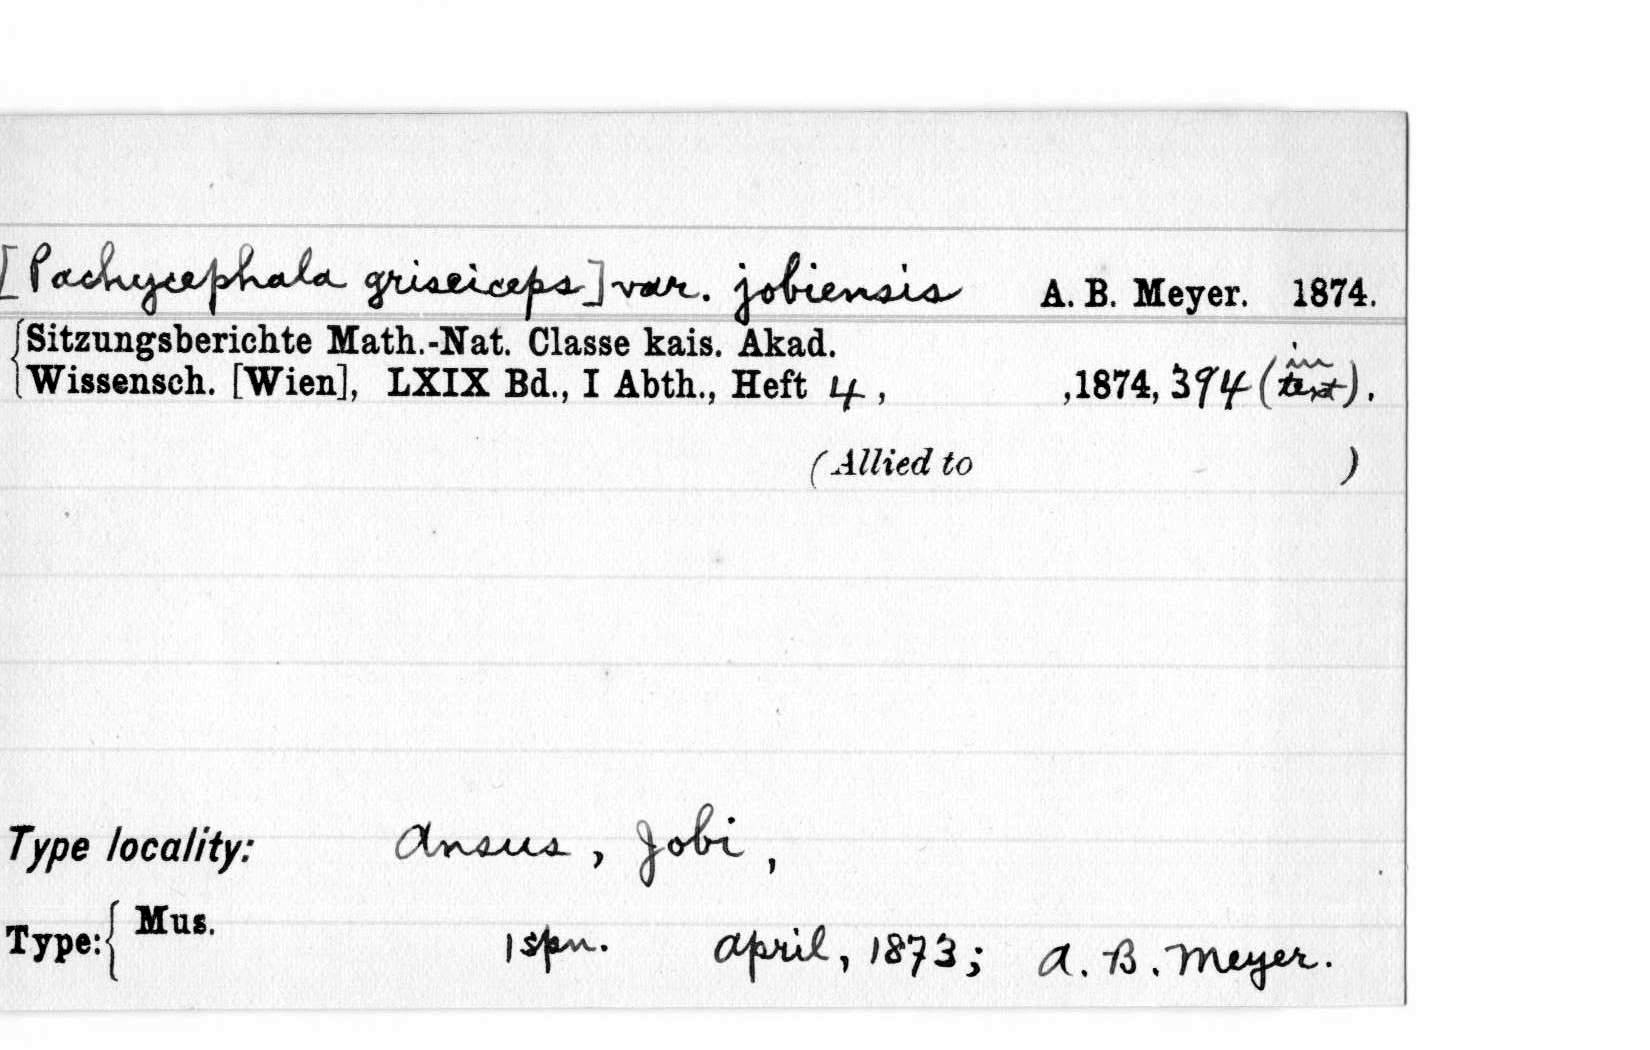 [Pachycephala griseiceps] var. jobiensis A. B. Meyer. 1874.
Sitzungsberichte Math.-Nat. Classe kais. Akad.
Wissensch. [Wien], LXIX Bd., I Abth., Heft 4, ,1874, 394 (in text).
(Allied to )
Type locality: Ansus, Jobi,
Type: { Mus. 1 spn. April, 1873; A. B. Meyer.